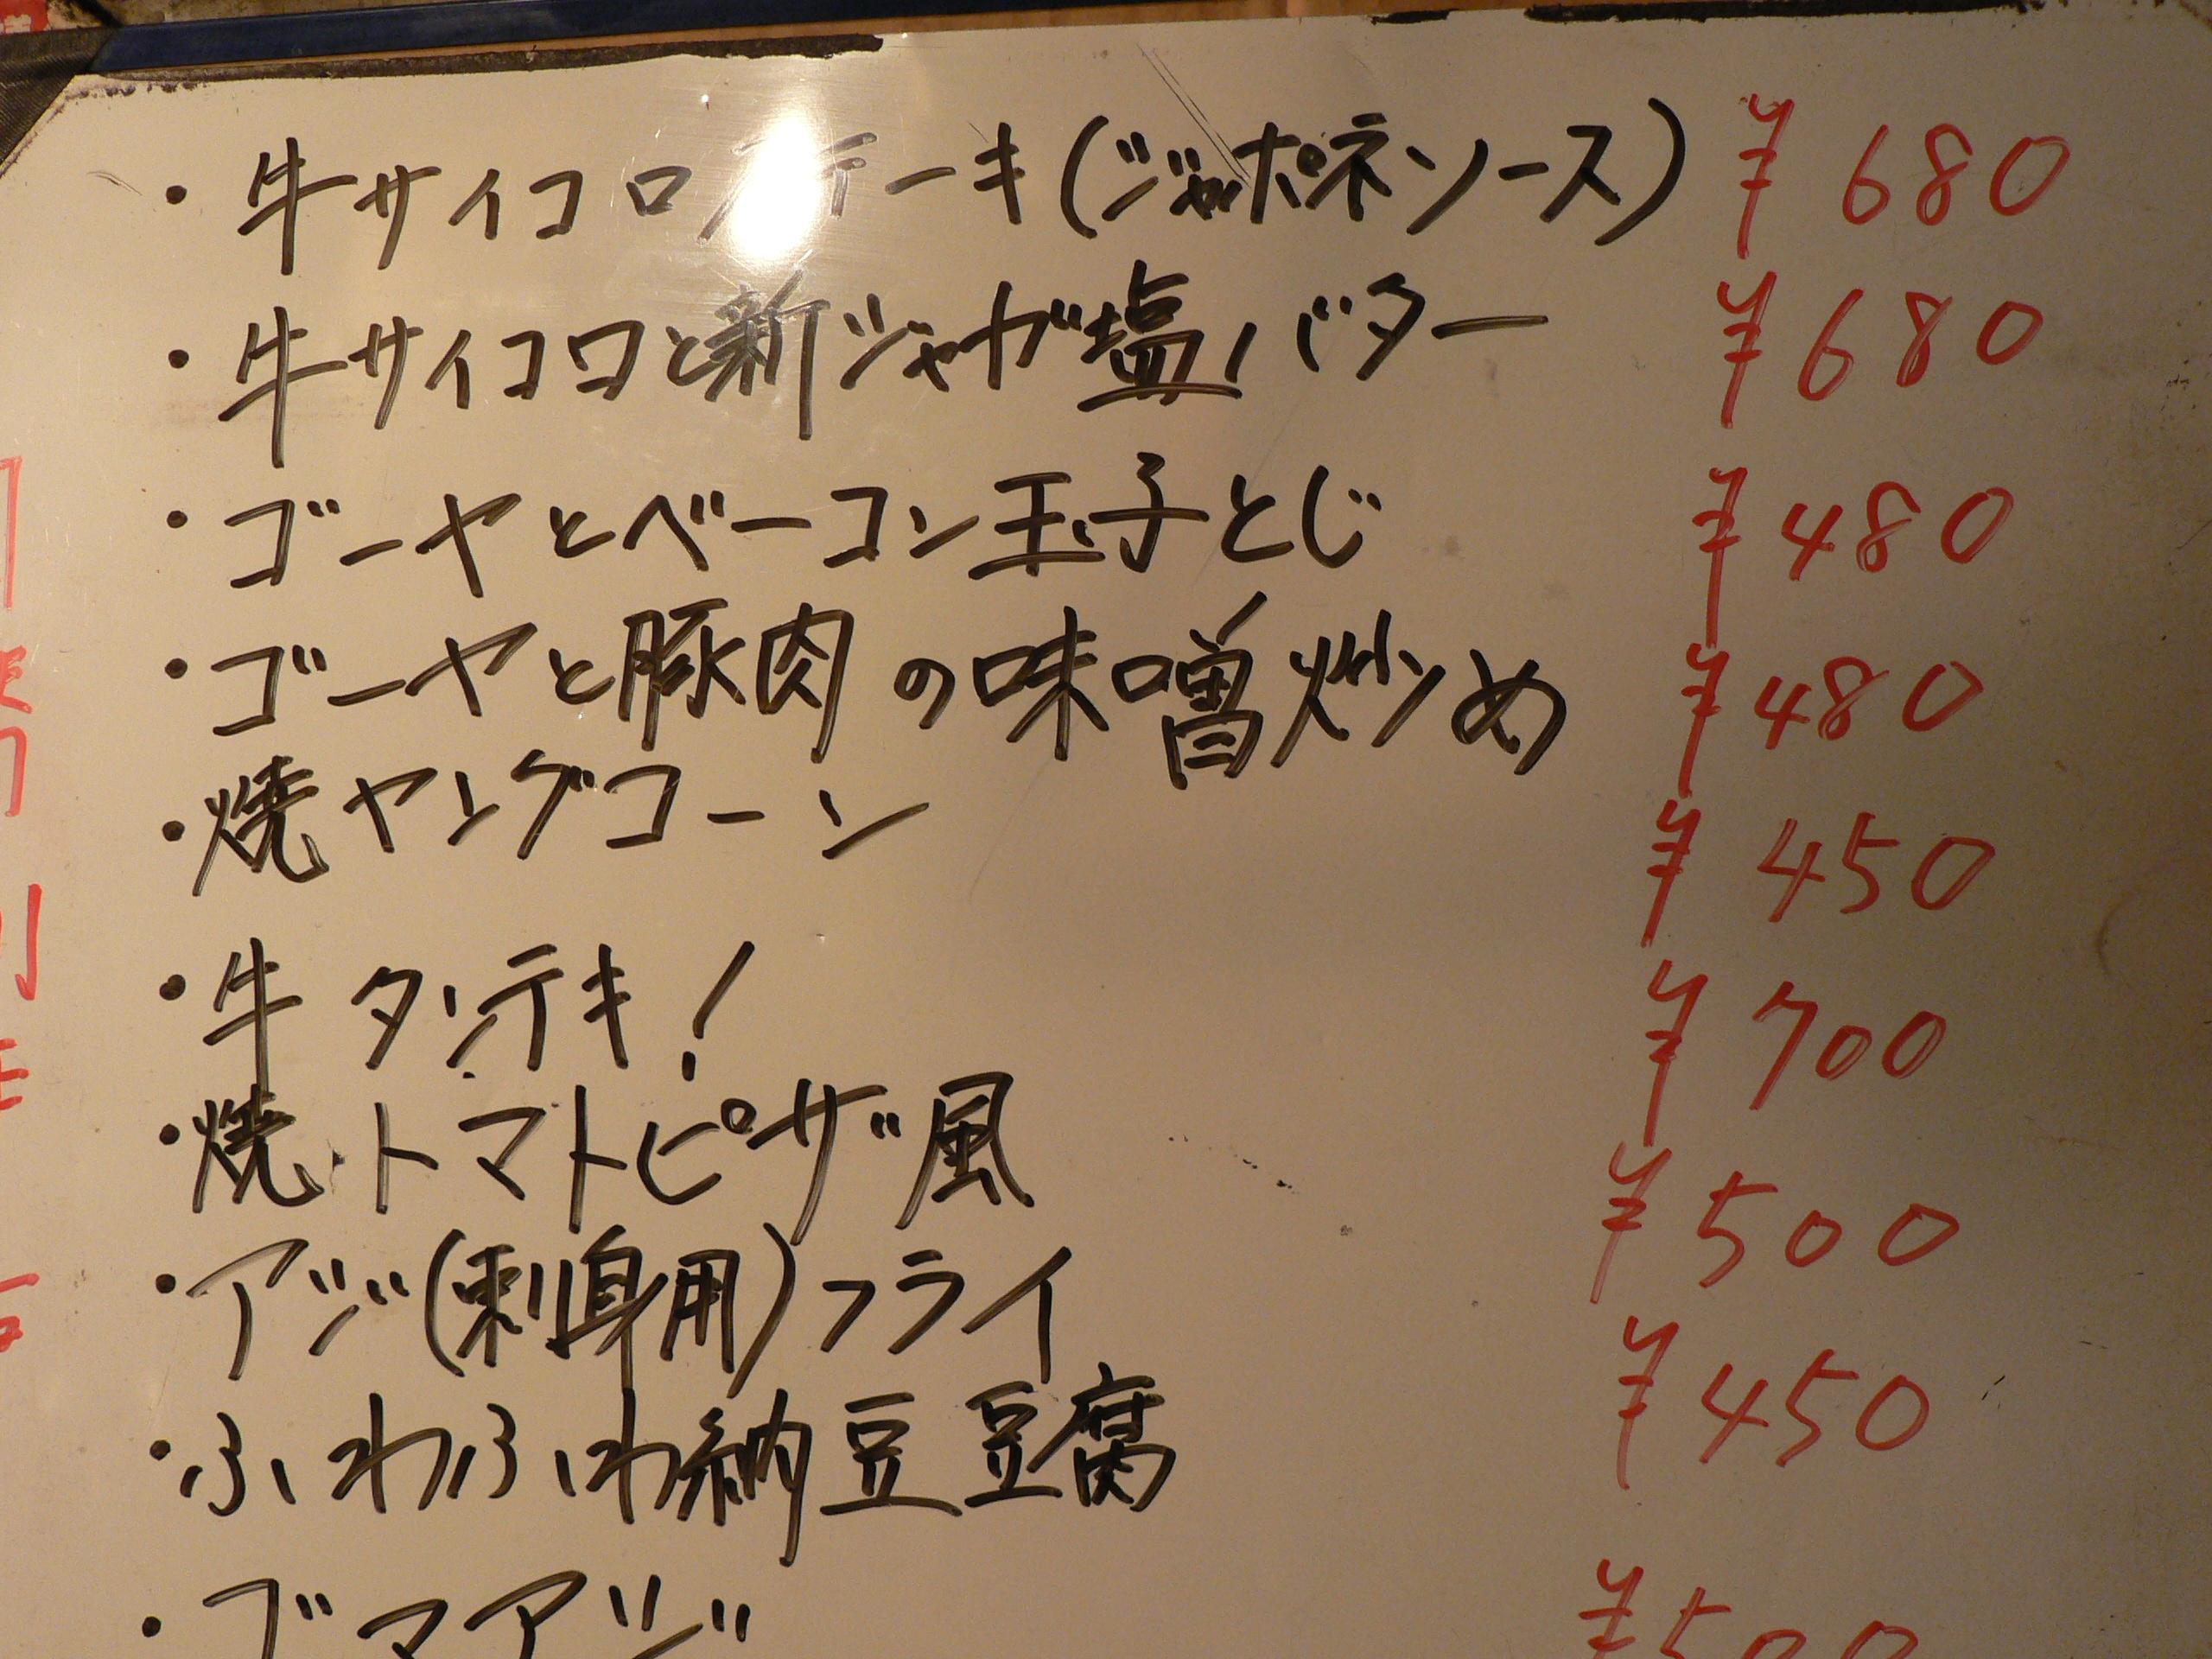 ・牛サイコロステーキ(ジャポネソース) ¥680
・牛サイコロと新ジャガ塩バター ¥680
・ゴーヤとベーコン玉子とじ ¥480
・ゴーヤと豚肉の味噌炒め ¥480
・焼ヤングコーン ¥450
・牛タンテキ! ¥700
・焼トマトピザ風 ¥500
・アジ(刺身用)フライ ¥450
・ふわふわ納豆豆腐 ¥500
・ゴマアジ